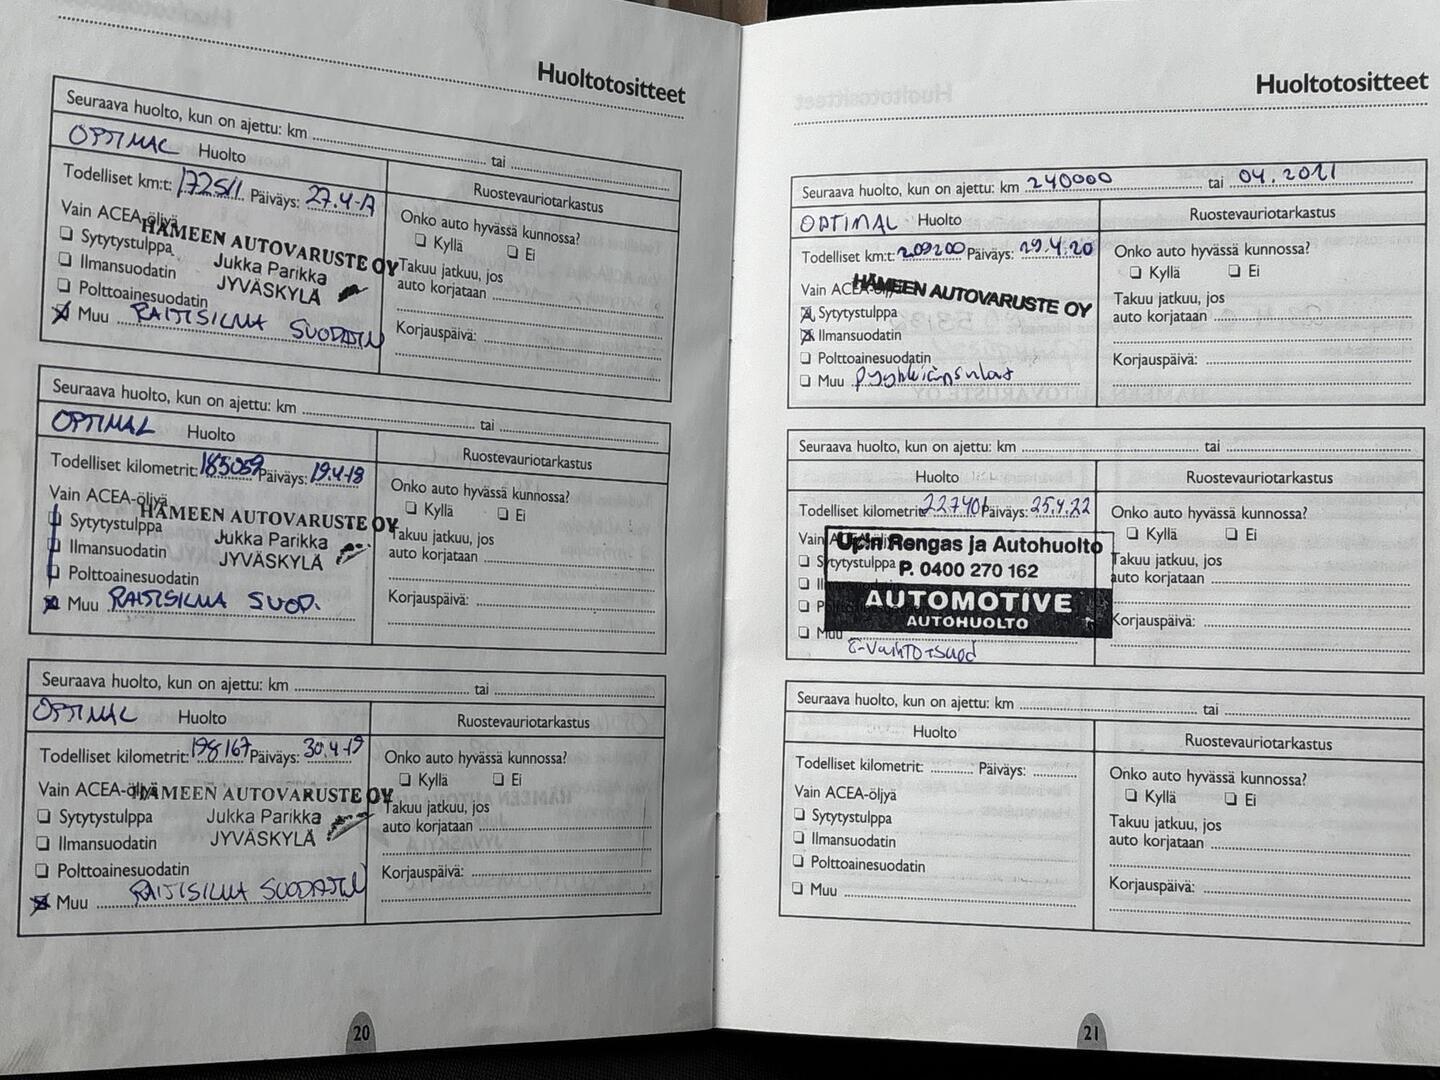 Huoltotositteet
Seuraava huolto, kun on ajettu: km tai
OPTIMAL Huolto
Ruostevauriotarkastus
Todelliset km:t: 172511 Päiväys: 27.4-17
Onko auto hyvässä kunnossa?
Vain ACEA-öljyä
Kyllä Ei
HÄMEEN AUTOVARUSTE OY
Sytytystulppa
Jukka Parikka
Takuu jatkuu, jos
Ilmansuodatin
JYVÄSKYLÄ
auto korjataan
Polttoainesuodatin
Muu RAITISILMA SUODATIN
Korjauspäivä:
Seuraava huolto, kun on ajettu: km tai
OPTIMAL Huolto
Ruostevauriotarkastus
Todelliset kilometrit: 185059 Päiväys: 19.4-18
Onko auto hyvässä kunnossa?
Vain ACEA-öljyä
Kyllä Ei
HÄMEEN AUTOVARUSTE OY
Sytytystulppa
Jukka Parikka
Takuu jatkuu, jos
Ilmansuodatin
JYVÄSKYLÄ
auto korjataan
Polttoainesuodatin
Muu RAITISILMA SUOD.
Korjauspäivä:
Seuraava huolto, kun on ajettu: km tai
OPTIMAL Huolto
Ruostevauriotarkastus
Todelliset kilometrit: 198167 Päiväys: 30.4-19
Onko auto hyvässä kunnossa?
Kyllä Ei
Vain ACEA-öljyä
HÄMEEN AUTOVARUSTE OY
Sytytystulppa
Jukka Parikka
Takuu jatkuu, jos
Ilmansuodatin
JYVÄSKYLÄ
auto korjataan
Polttoainesuodatin
Muu RAITISILMA SUODATIN
Korjauspäivä:
20
Huoltotositteet
Seuraava huolto, kun on ajettu: km 240000 tai 04.2021
OPTIMAL Huolto
Ruostevauriotarkastus
Todelliset km:t: 209200 Päiväys: 29.4.20
Onko auto hyvässä kunnossa?
Kyllä Ei
Vain ACEA-öljyä
HÄMEEN AUTOVARUSTE OY
Sytytystulppa
Takuu jatkuu, jos
Ilmansuodatin
auto korjataan
Polttoainesuodatin
Korjauspäivä:
Muu pyyhkiänsulat
Seuraava huolto, kun on ajettu: km tai
Huolto
Ruostevauriotarkastus
Todelliset kilometrit: 227401 Päiväys: 25.4.22
Onko auto hyvässä kunnossa?
Kyllä Ei
Vain
Up:n Rengas ja Autohuolto
Sytytystulppa
P. 0400 270 162
Takuu jatkuu, jos
auto korjataan
AUTOMOTIVE
AUTOHUOLTO
Korjauspäivä:
Muu
Ö-Vaihto+suod
Seuraava huolto, kun on ajettu: km tai
Huolto
Ruostevauriotarkastus
Todelliset kilometrit: Päiväys:
Onko auto hyvässä kunnossa?
Vain ACEA-öljyä
Kyllä Ei
Sytytystulppa
Takuu jatkuu, jos
Ilmansuodatin
auto korjataan
Polttoainesuodatin
Korjauspäivä:
Muu
21